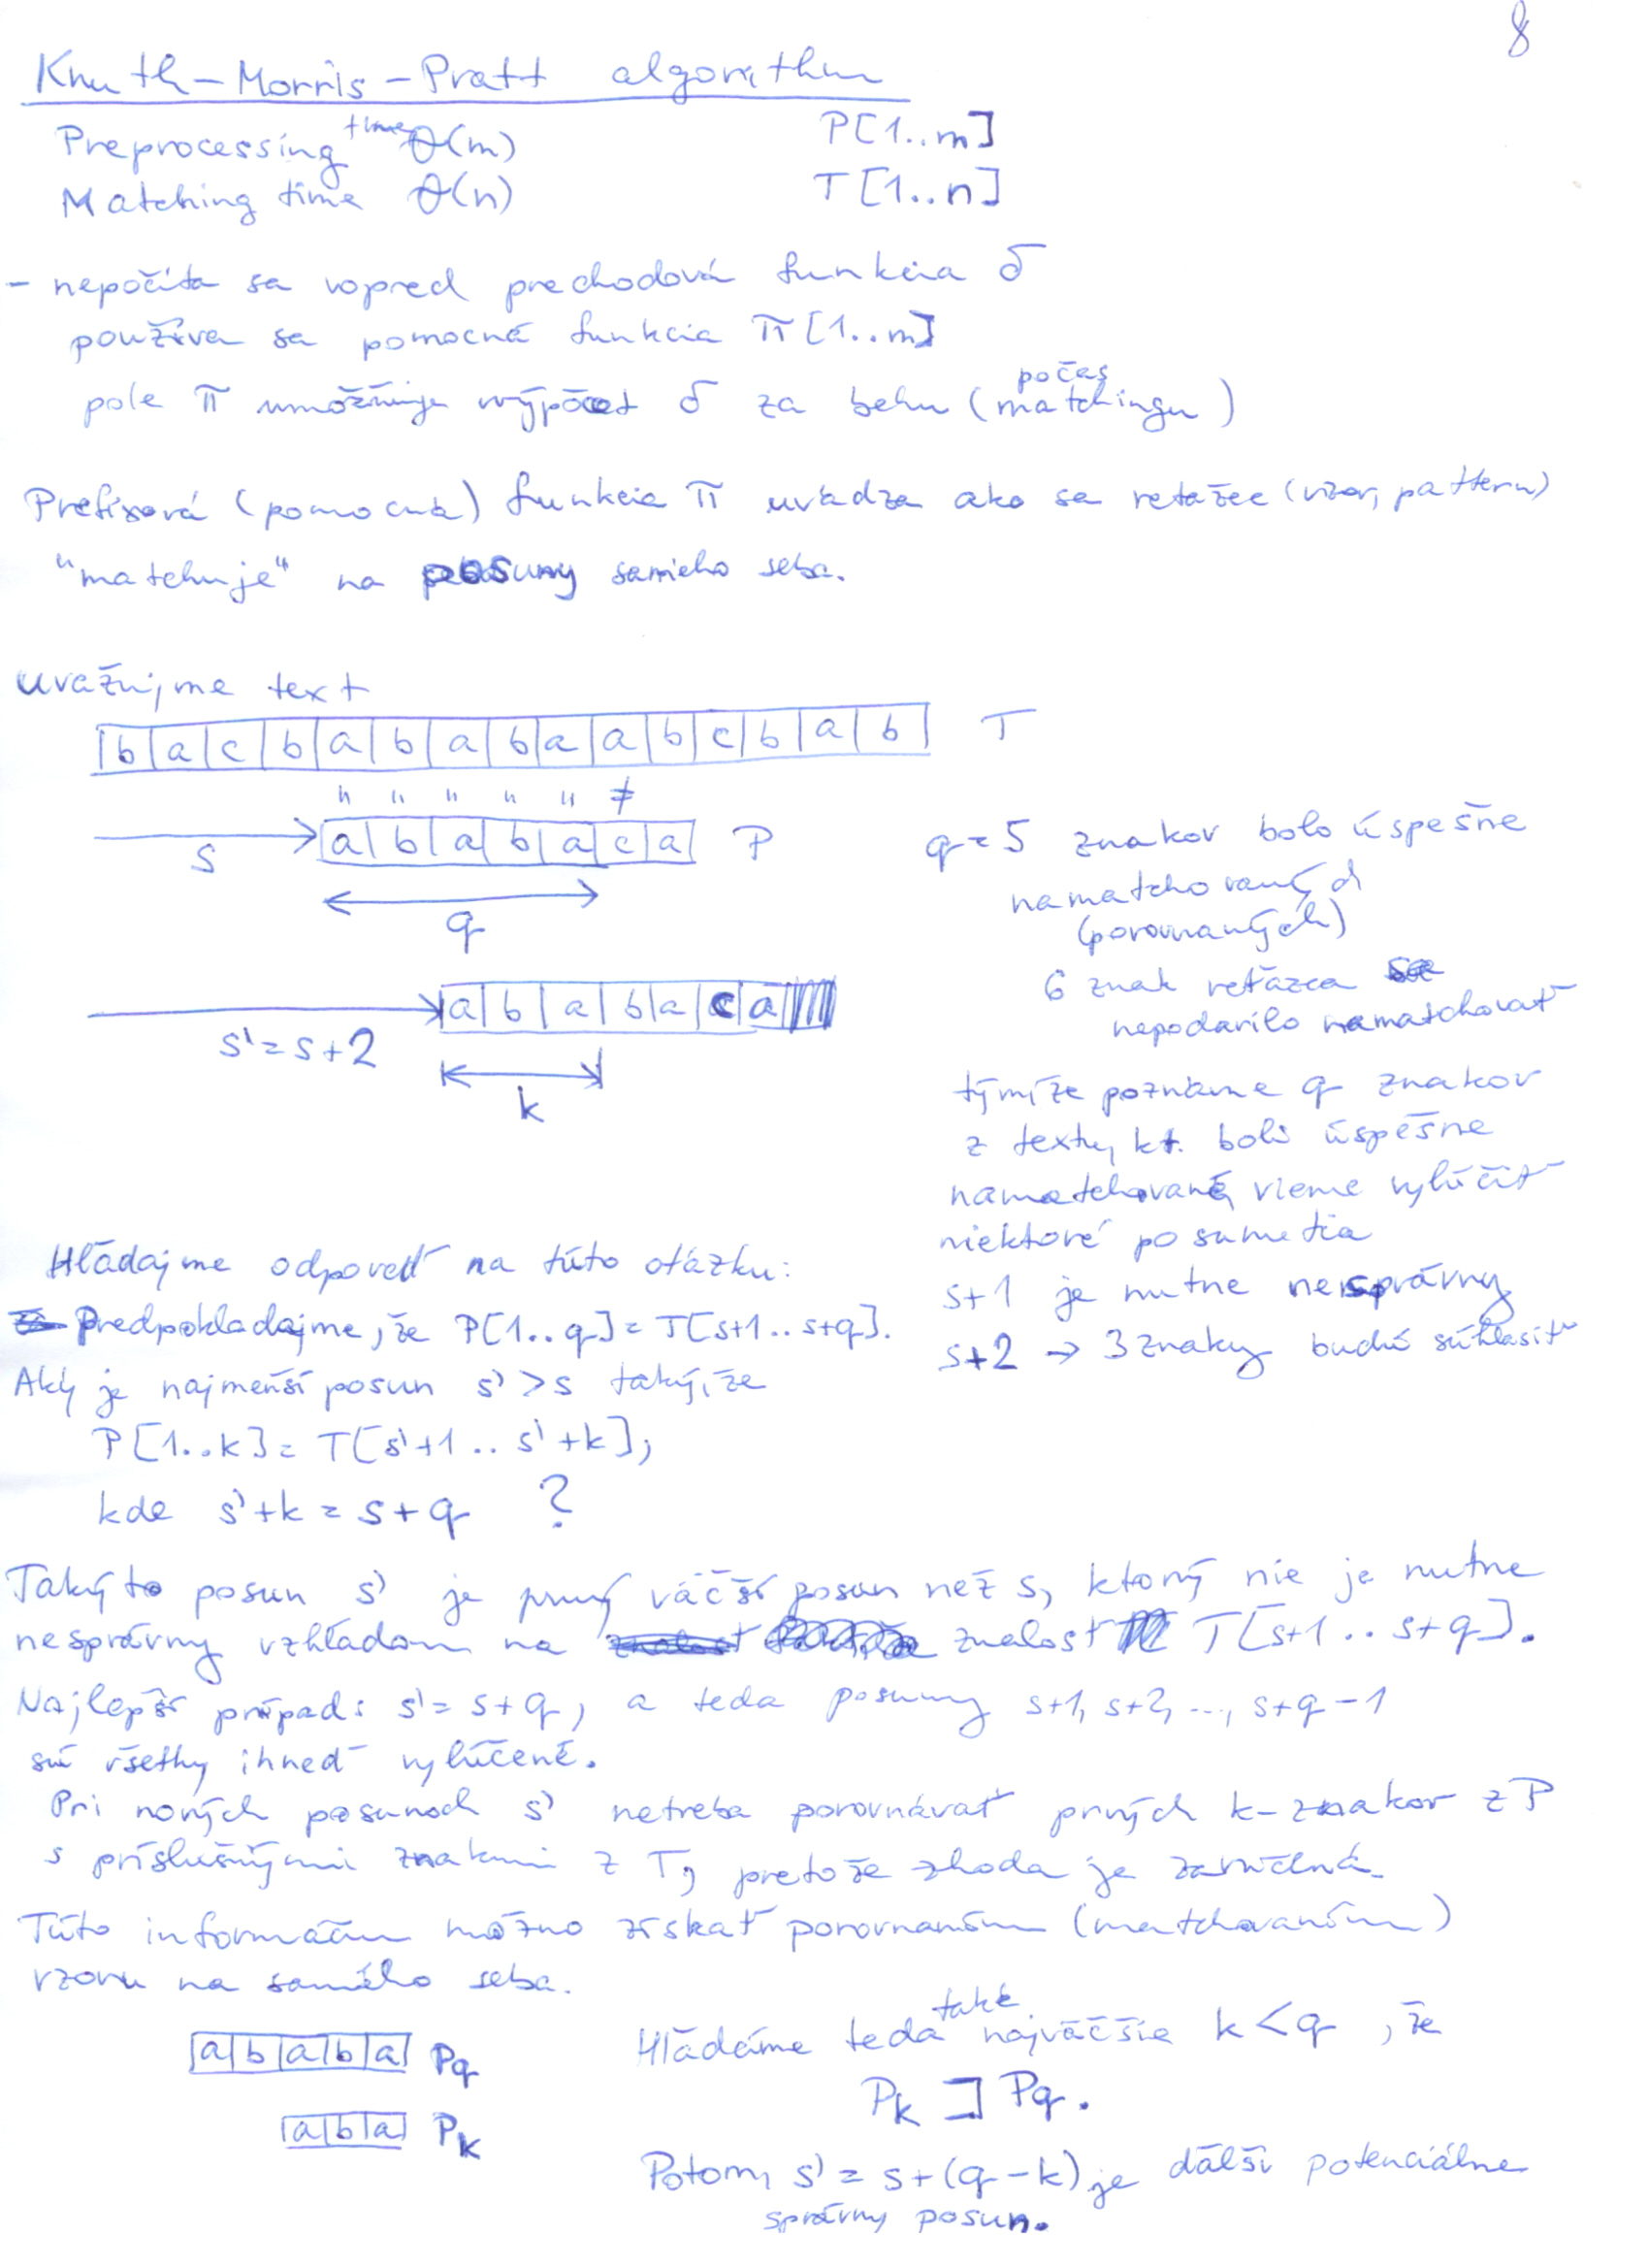 8
Knuth-Morris-Pratt algorithm
Preprocessing time Θ(m) P[1..m]
Matching time Θ(n) T[1..n]
- nepočíta sa vopred prechodová funkcia δ
používa sa pomocná funkcia π[1..m]
pole π umožňuje výpočet δ za behu (počas matchingu)
Prefixová (pomocná) funkcia π uvádza ako sa reťazec (vzor, pattern)
"matchuje" na posuny samého seba.
Uvažujme text
b a c b a b a b a a b c b a b T
" " " " " ≠
s a b a b a c a P
q
q=5 znakov bolo úspešne
namatchovaných
(porovnaných)
6 znak reťazca
nepodarilo namatchovať
a b a b a c a
s'=s+2
k
tým, že poznáme q znakov
z textu, kt. boli úspešne
namatchované, vieme vylúčiť
niektoré posunutia
s+1 je nutne nesprávny
s+2 → 3 znaky budú súhlasiť
Hľadajme odpoveď na túto otázku:
Predpokladajme, že P[1..q] = T[s+1..s+q].
Aký je najmenší posun s' > s taký, že
P[1..k] = T[s'+1..s'+k],
kde s'+k = s+q ?
Takýto posun s' je prvý väčší posun než s, ktorý nie je nutne
nesprávny vzhľadom na znalosť T[s+1..s+q].
Najlepší prípad: s'=s+q, a teda posuny s+1, s+2, ..., s+q-1
sú všetky ihneď vylúčené.
Pri nových posunoch s' netreba porovnávať prvých k-znakov z P
s príslušnými znakmi z T, pretože zhoda je zaručená.
Túto informáciu možno získať porovnaním (matchovaním)
vzoru na samého seba.
a b a b a Pq
a b a Pk
Hľadáme teda také najväčšie k<q, že
Pk ⊐ Pq.
Potom, s' = s+(q-k) je ďalší potenciálne
správny posun.